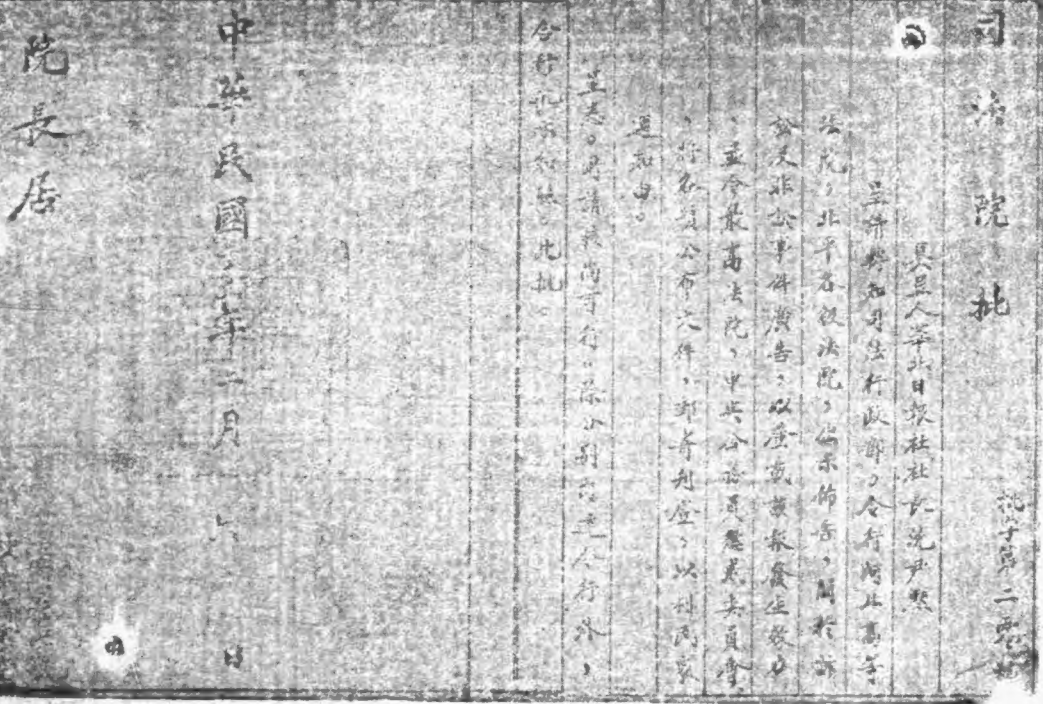 司法院批
批字第二
具呈人華北日報社社長沈尹默
呈請轉知司法行政部，令行河北高等
法院，北平各級法院，佈告，關於訴
訟及非訟事件廣告，以登載該報發生效力
，並令最高法院，中央公務員懲戒委員會
，將各項公布文件，郵寄刊登，以利民衆
週知由。
呈悉。所請核尚可行。除分別令行外，
合行批示知照。此批。
中華民國年二月日
院長居